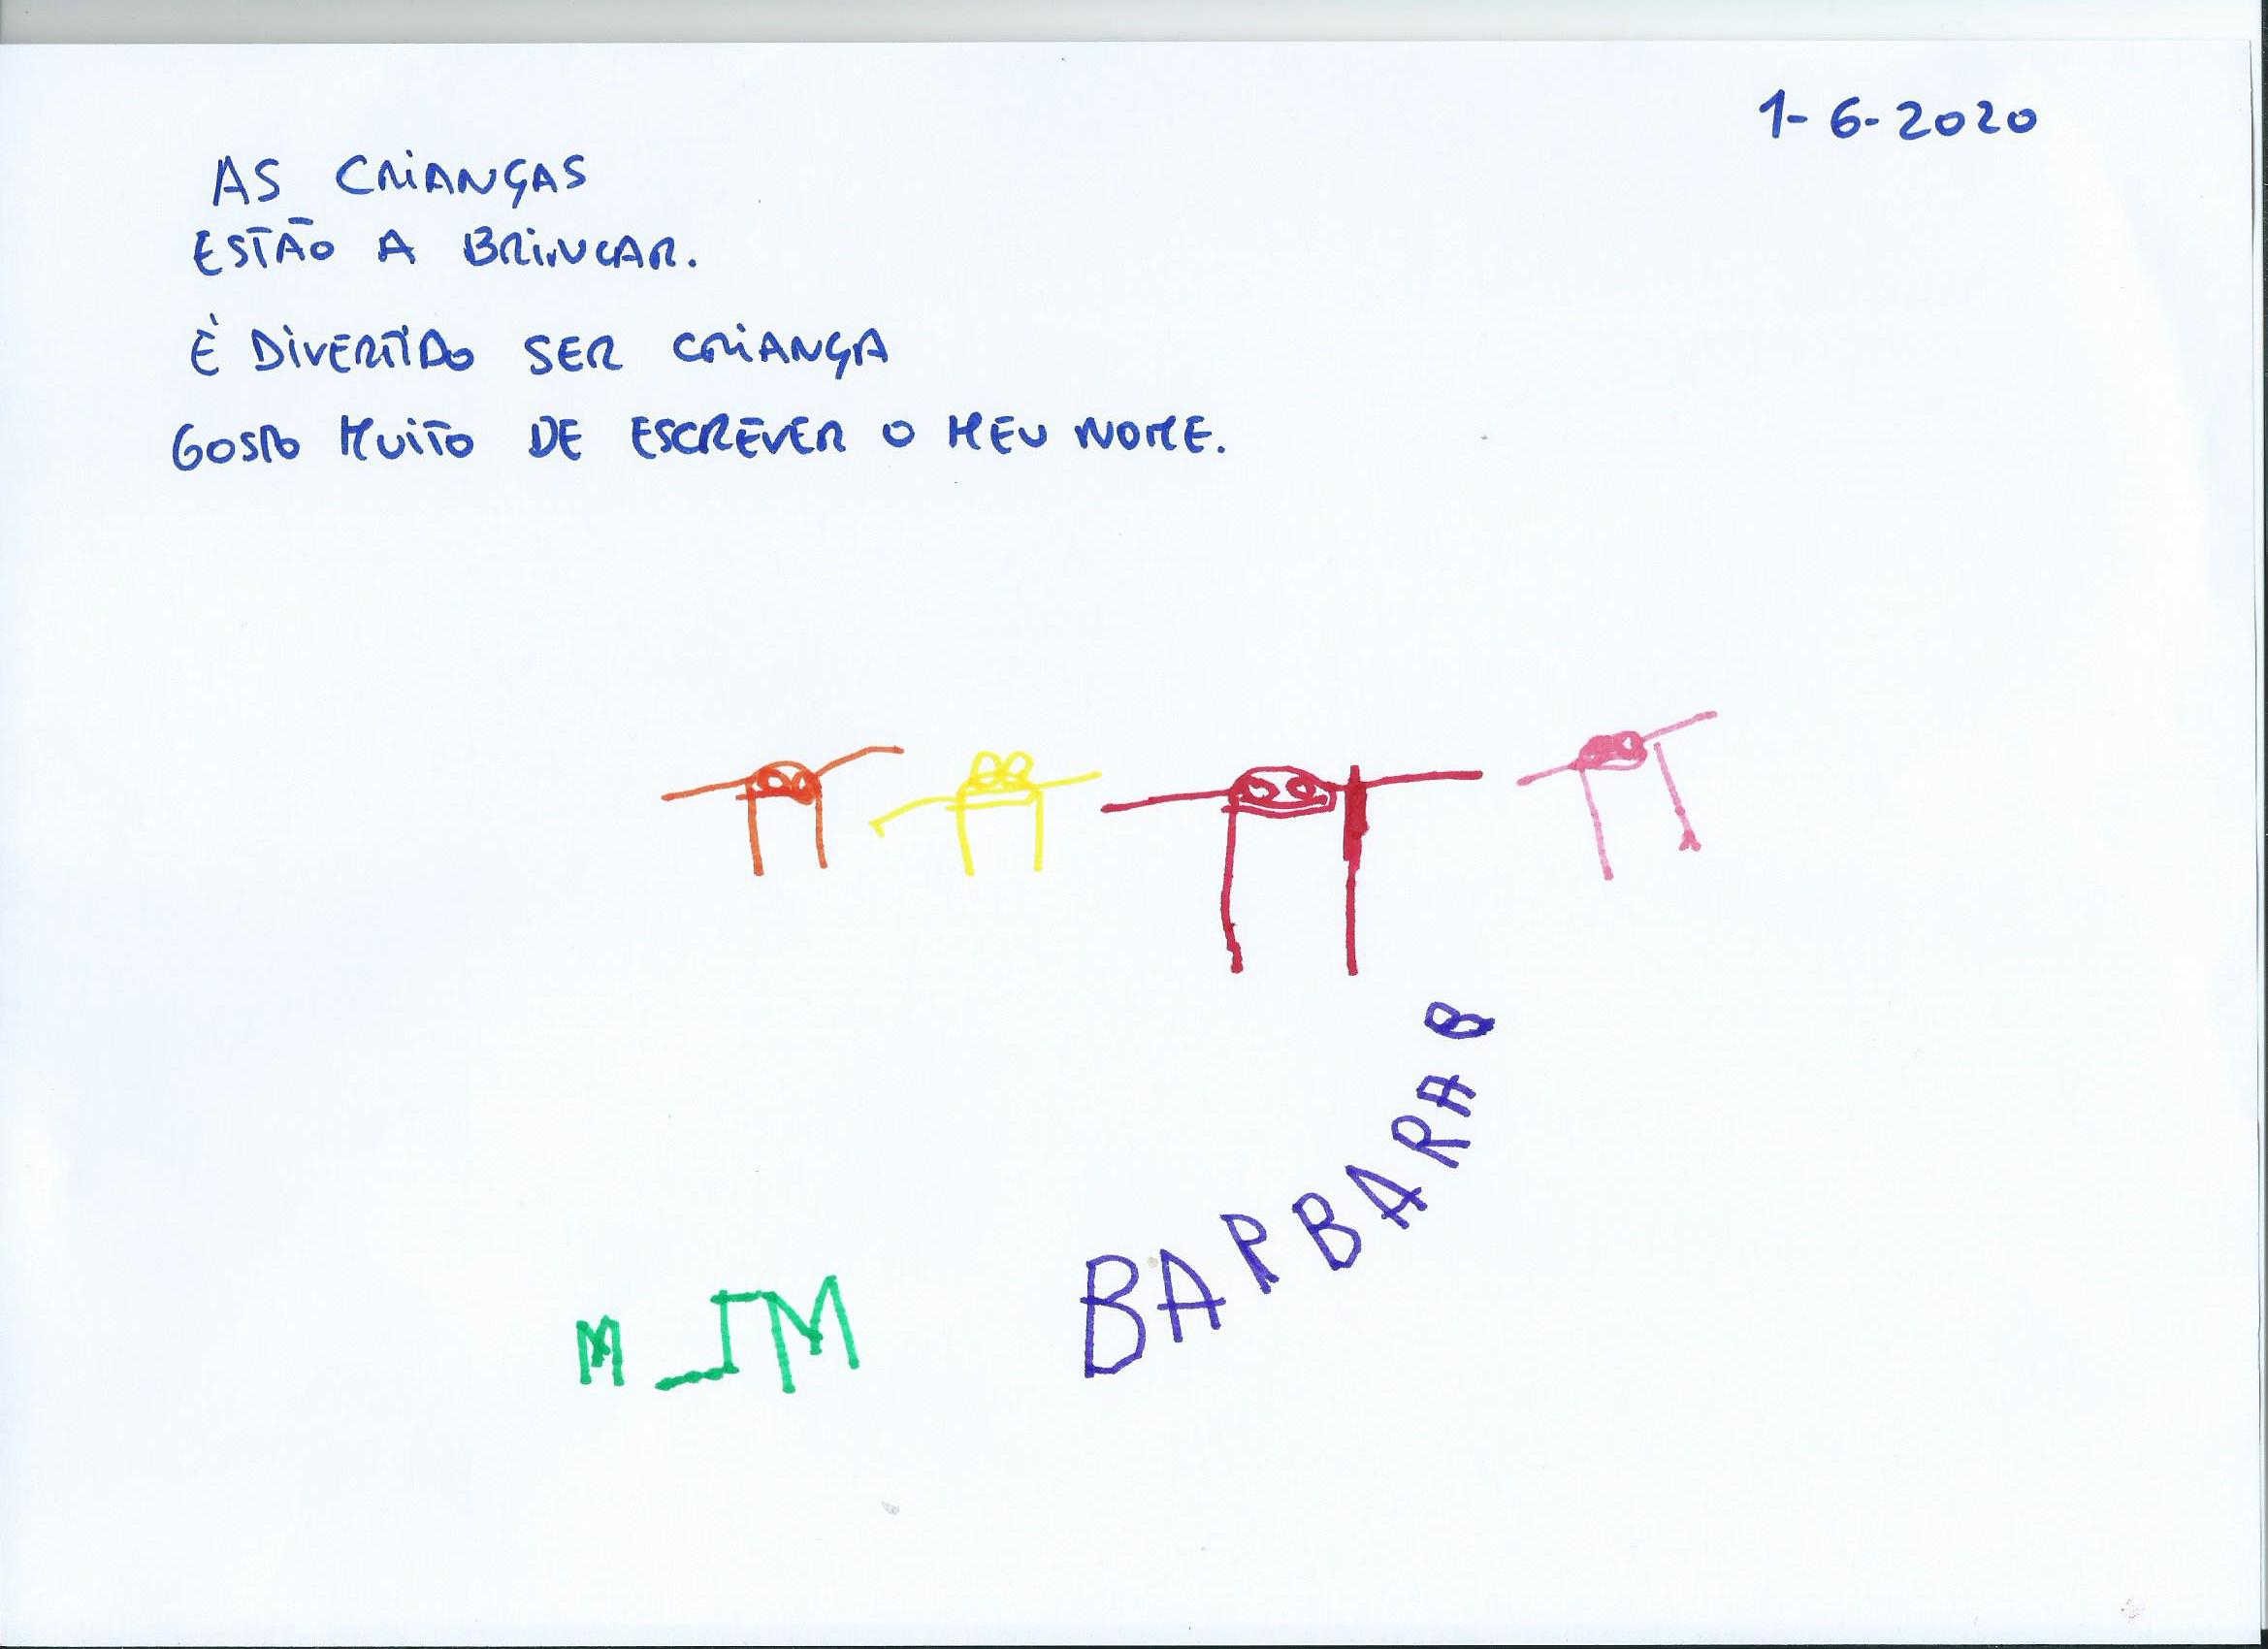 1-6-2020
AS CRIANÇAS
ESTÃO A BRINCAR.
É DIVERTIDO SER CRIANÇA
GOSTO MUITO DE ESCREVER O MEU NOME.
BARBARA B